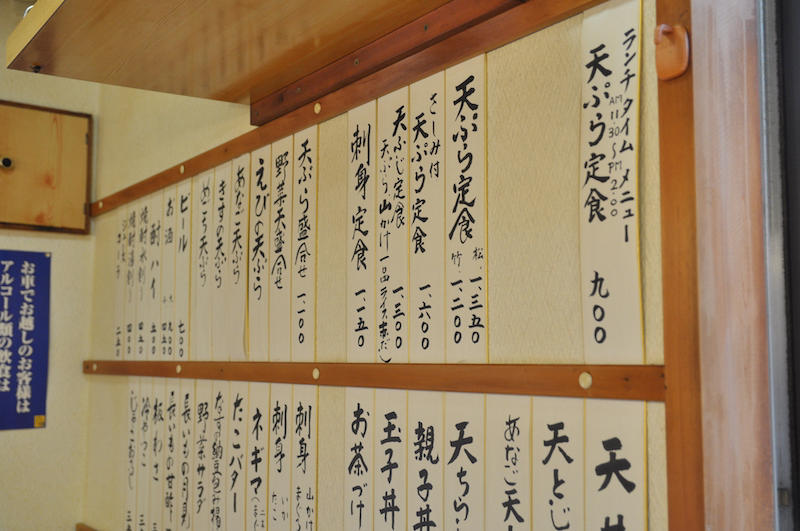 ランチタイムメニュー
AM11:30〜PM2:00
天ぷら定食 九00
天ぷら定食 松、一、三五0
竹、一、二00
さしみ付
天ぷら定食 一、六00
天ぷじ定食 一、三00
天ぷら山かけ一品ライス赤だし)
刺身定食 一、一五0
天ぷら盛合せ 一、一00
野菜天盛合せ
えびの天ぷら
あなご天ぷら
きすの天ぷら
めごち天ぷら
ビール 七00
お酒 大 九00
小 四五0
酎ハイ 五00
焼酎水割り 四00
焼酎湯割り 四00
コーラ 二五0
天
天とじ
あなご天
天ちら
親子丼
玉子丼
お茶づけ
刺身 山かけ
まぐろ
刺身 いか
たこ
ネギマ
たこバター
なすの納豆包み揚
野菜サラダ
長いもの月見
長いもの甘酢
板わさ
冷やっこ
じゃこおろし
お車でお越しのお客様は
アルコール類の飲食は